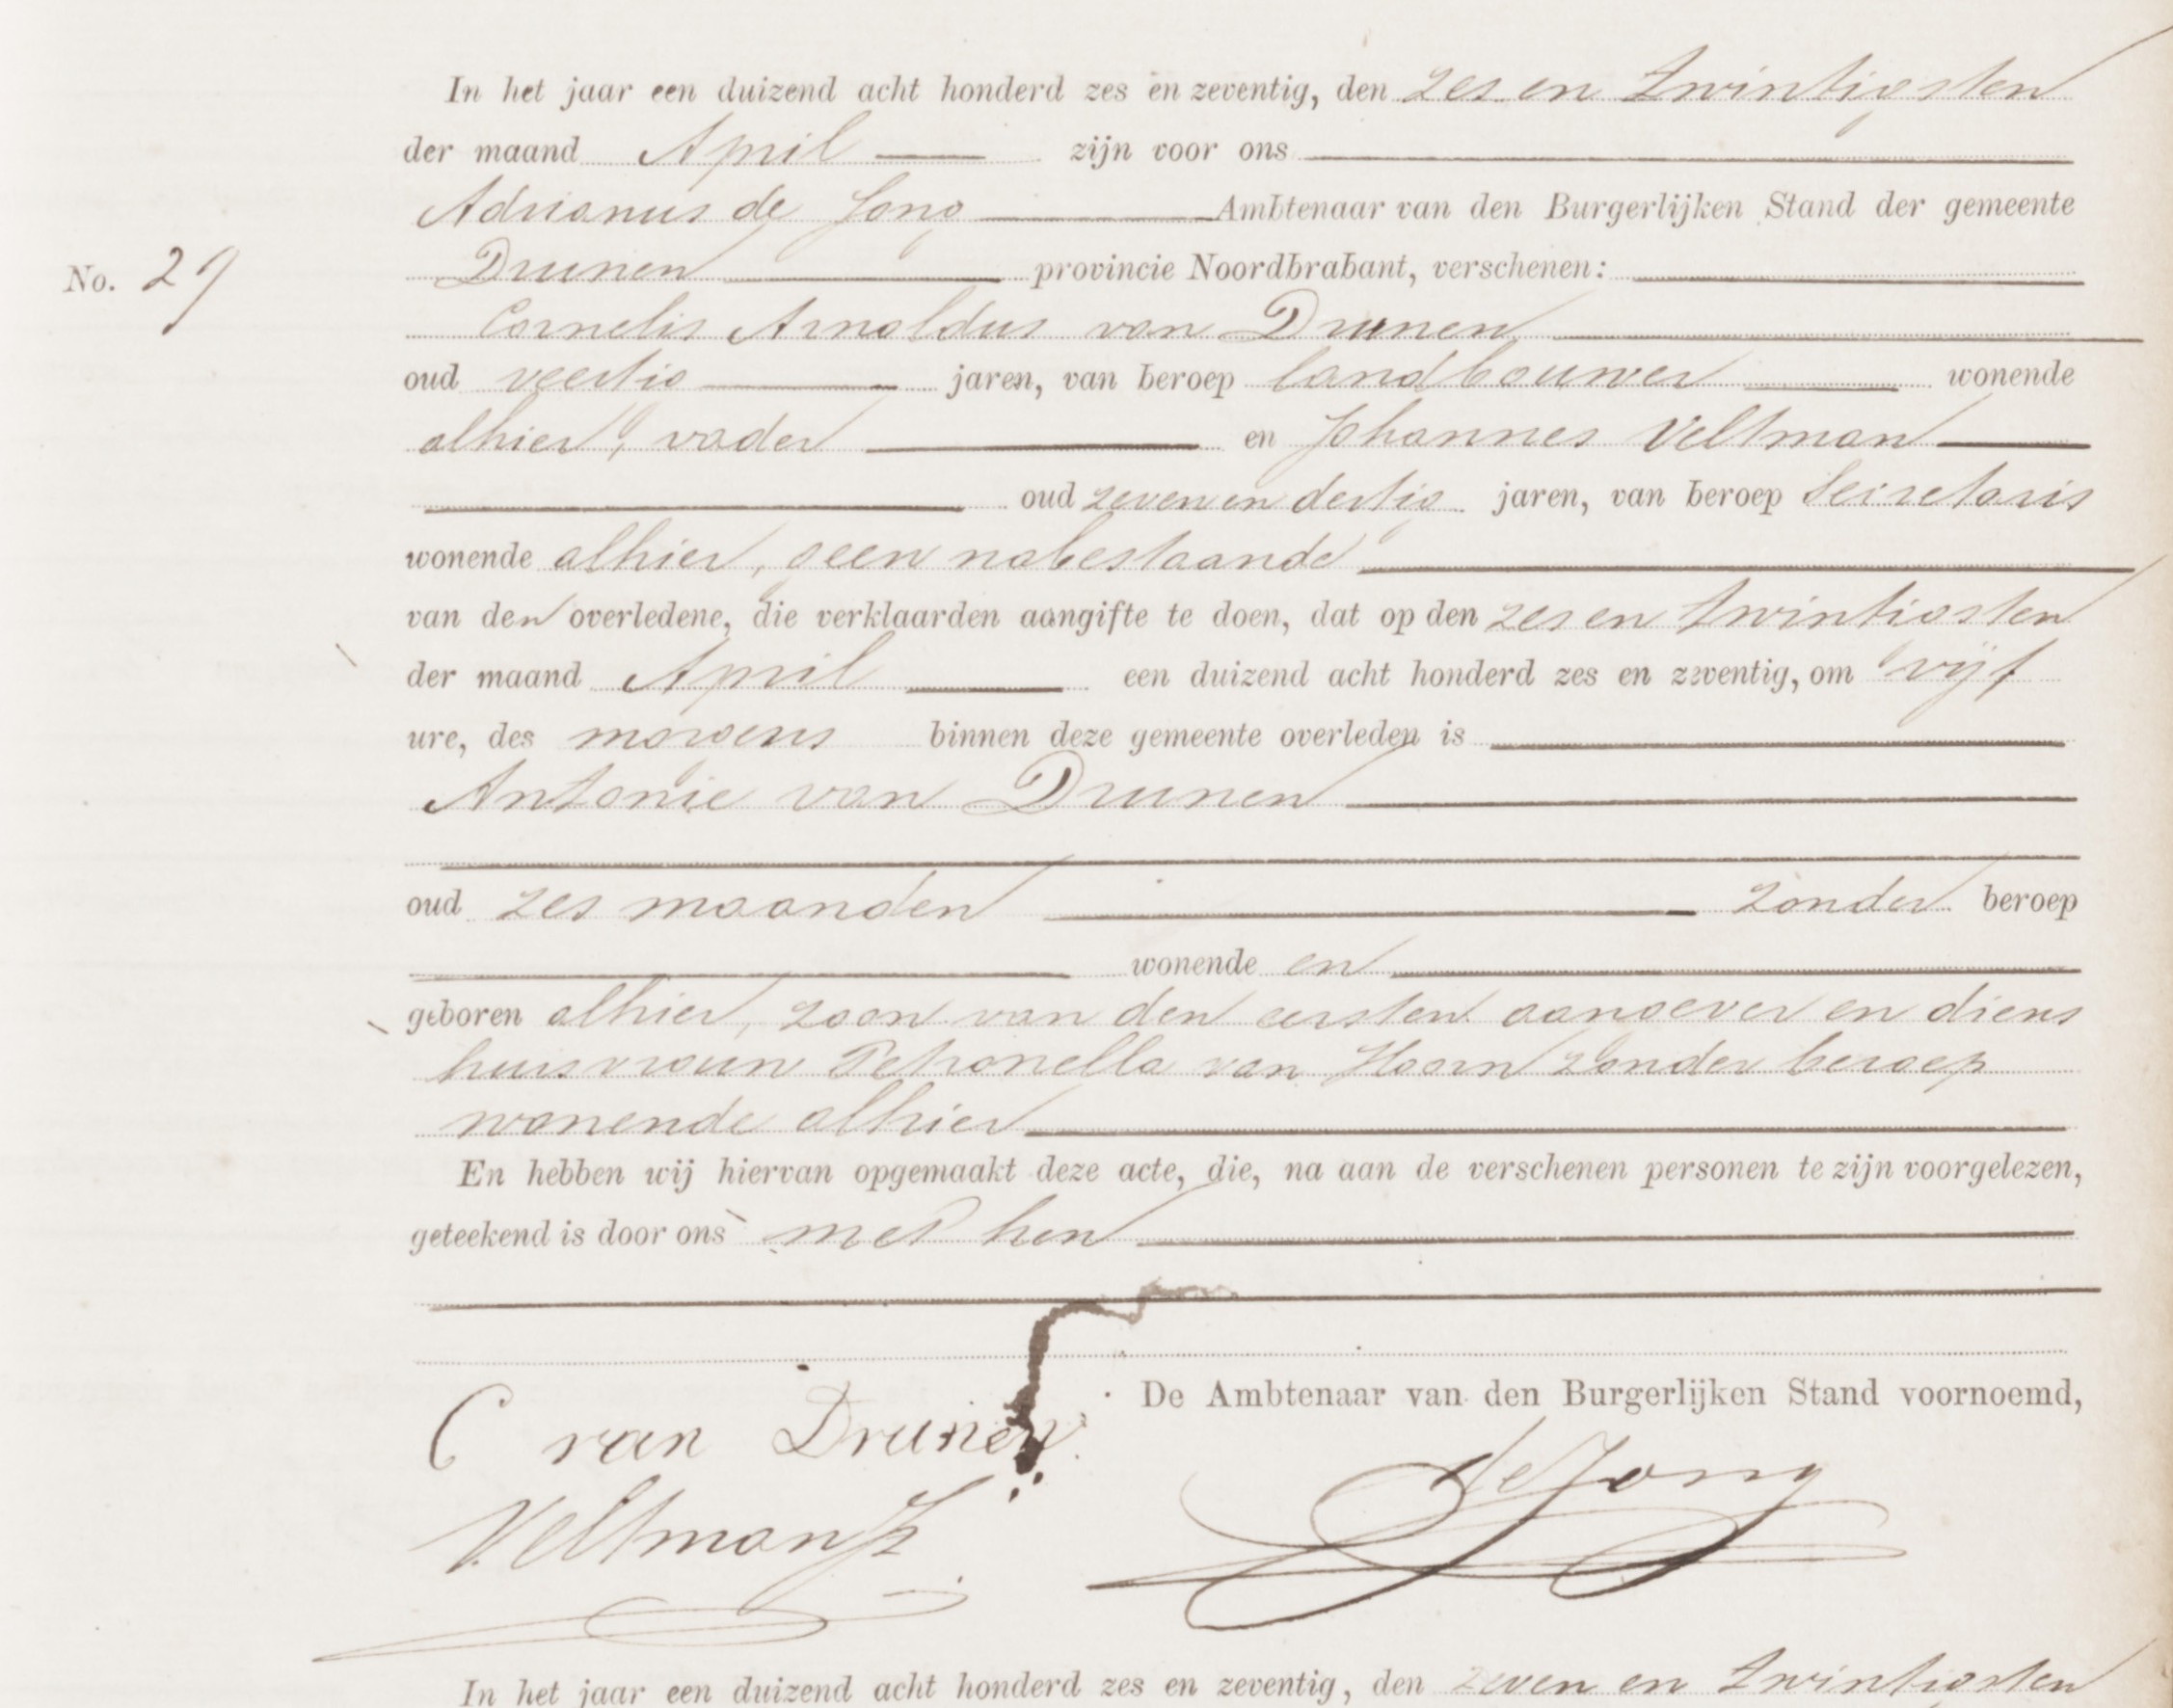 In het jaar een duizend acht honderd zes en zeventig, den zes en twintigsten
der maand April zijn voor ons
Adrianus de Jong Ambtenaar van den Burgerlijken Stand der gemeente
Drunen provincie Noordbrabant, verschenen:
No. 29
Cornelis Arnoldus van Drunen
oud veertig jaren, van beroep landbouwer wonende
alhier, vader en Johannes Veltman
oud zeven en dertig jaren, van beroep Secretaris
wonende alhier, geen nabestaande
van den overledene, die verklaarden aangifte te doen, dat op den zes en twintigsten
der maand April een duizend acht honderd zes en zeventig, om vijf
ure, des morgens binnen deze gemeente overleden is
Antonie van Drunen
oud zes maanden zonder beroep
wonende en
geboren alhier, zoon van den eersten aangever en diens
huisvrouw Petronella van Hoorn zonder beroep
wonende alhier
En hebben wij hiervan opgemaakt deze acte, die, na aan de verschenen personen te zijn voorgelezen,
geteekend is door ons met hen
De Ambtenaar van den Burgerlijken Stand voornoemd,
C van Drunen
de Jong
Veltman
In het jaar een duizend acht honderd zes en zeventig, den zeven en twintigsten